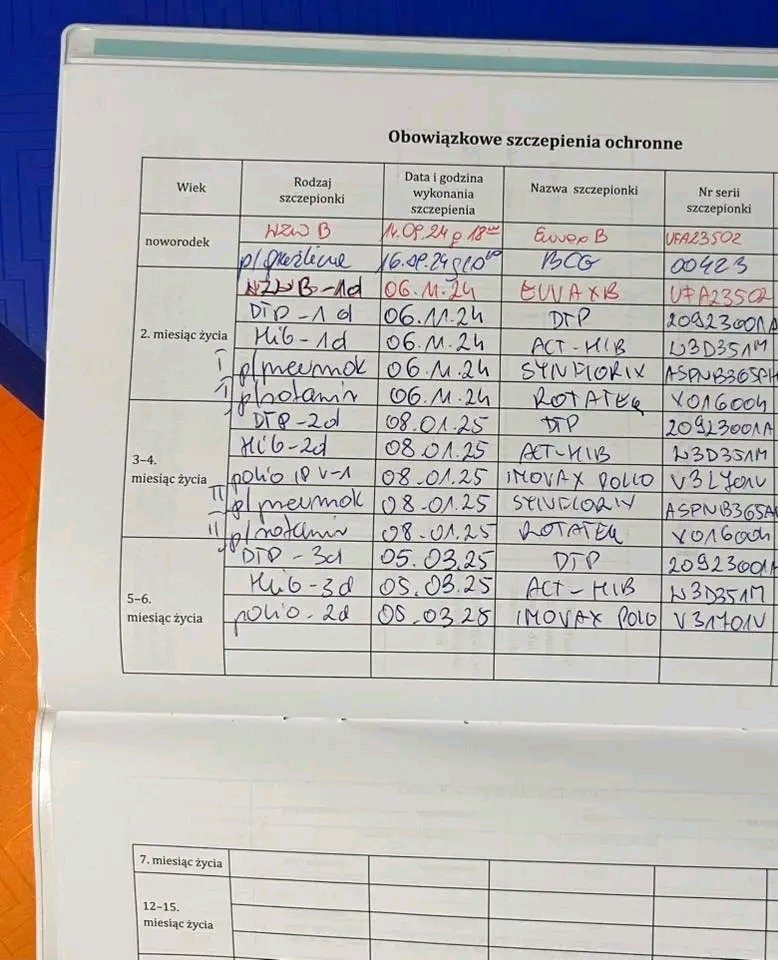 Obowiązkowe szczepienia ochronne
Wiek Rodzaj szczepionki Data i godzina wykonania szczepienia Nazwa szczepionki Nr serii szczepionki
noworodek WZW B 14.09.24 g 18⁰⁰ Euvax B UFA23502
p/gruźlicze 16.09.24 g 10⁰⁰ BCG 00423
2. miesiąc życia WZW B-1d 06.11.24 EUVAXB UFA23502
DTP-1d 06.11.24 DTP 20923001A
Hib-1d 06.11.24 ACT-HIB W3D351M
I p/pneumok 06.11.24 SYNFLORIX ASPNB365AH
I p/rotawir 06.11.24 ROTATEQ X016004
3–4. miesiąc życia DTP-2d 08.01.25 DTP 20923001A
Hib-2d 08.01.25 ACT-HIB W3D351M
polio IPV-1 08.01.25 IMOVAX POLIO V3L701V
II p/pneumok 08.01.25 SYNFLORIX ASPNB365A
II p/rotawir 08.01.25 ROTATEQ X016004
5–6. miesiąc życia DTP-3d 05.03.25 DTP 20923001A
Hib-3d 05.03.25 ACT-HIB W3D351M
polio-2d 05.03.25 IMOVAX POLIO V3L701V
7. miesiąc życia
12–15. miesiąc życia